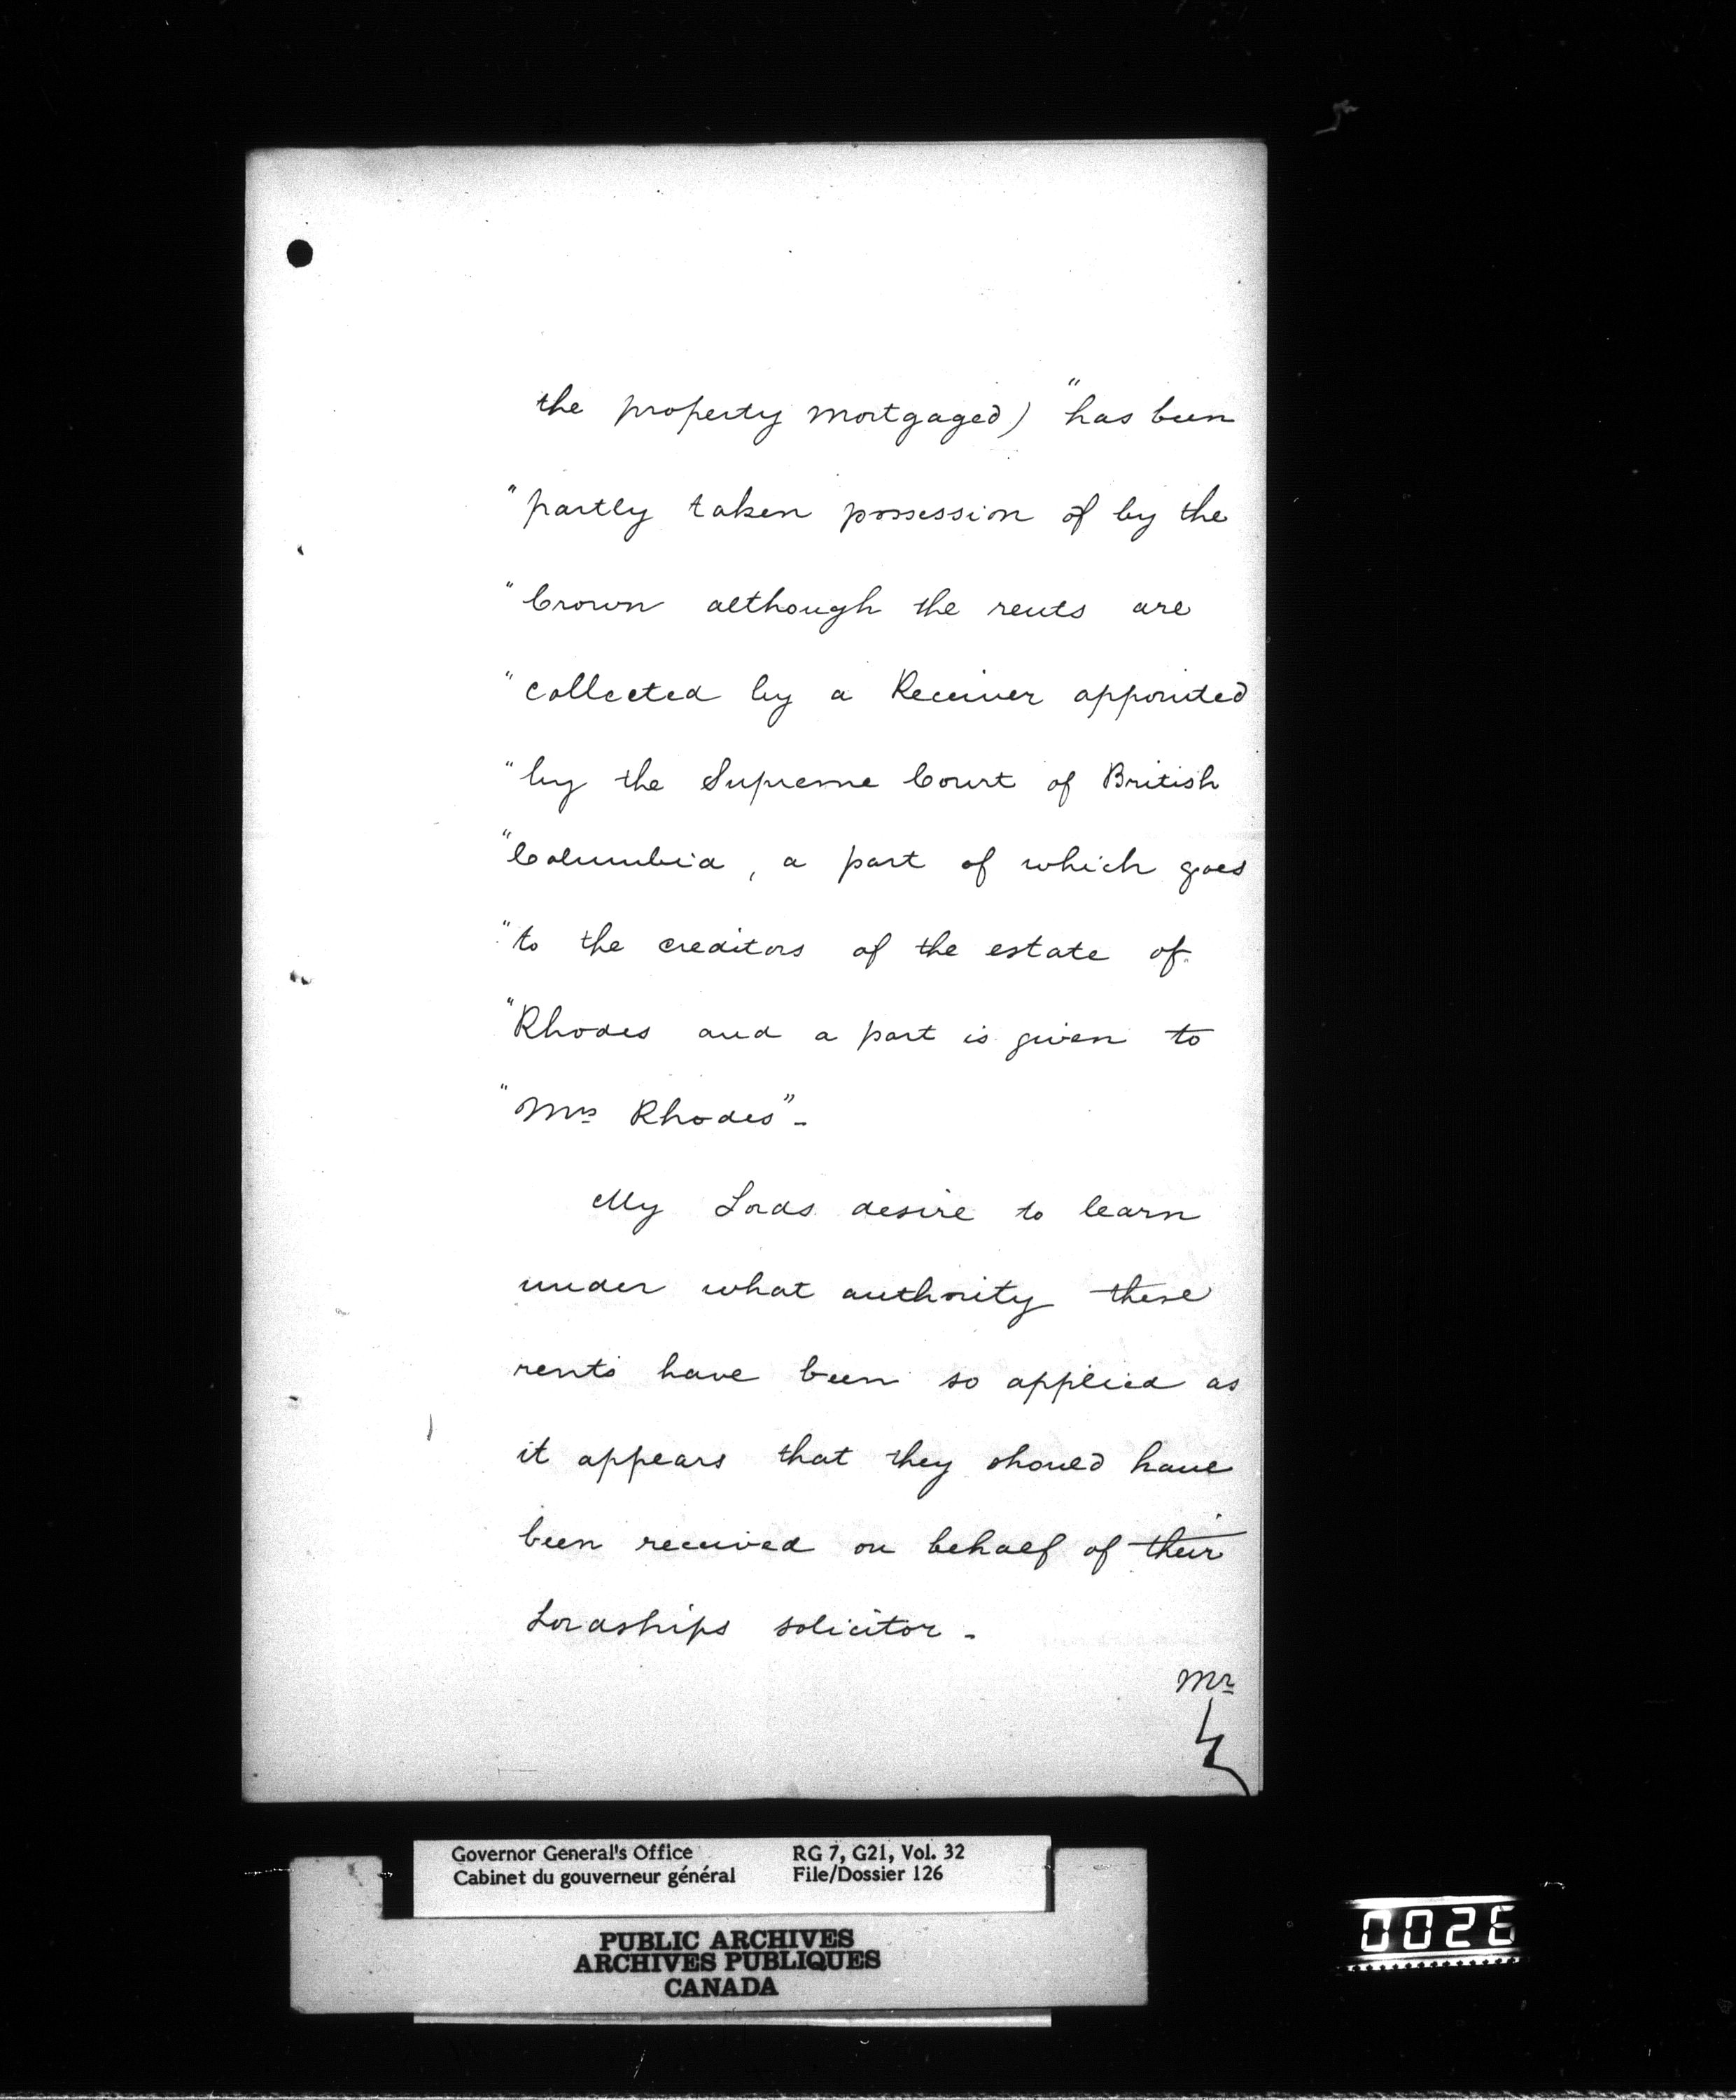 the property mortgaged) "has been
"partly taken possession of by the
"Crown although the rents are
"collected by a Receiver appointed
"by the Supreme Court of British
"Columbia, a part of which goes
"to the creditors of the estate of
"Rhodes and a part is given to
"Mrs Rhodes"-
My Lords desire to learn
under what authority these
rents have been so applied as
it appears that they should have
been received on behalf of their
Lordships solicitor -
Mr
Governor General's Office RG 7, G21, Vol. 32
Cabinet du gouverneur général File/Dossier 126
PUBLIC ARCHIVES
ARCHIVES PUBLIQUES
CANADA
0026